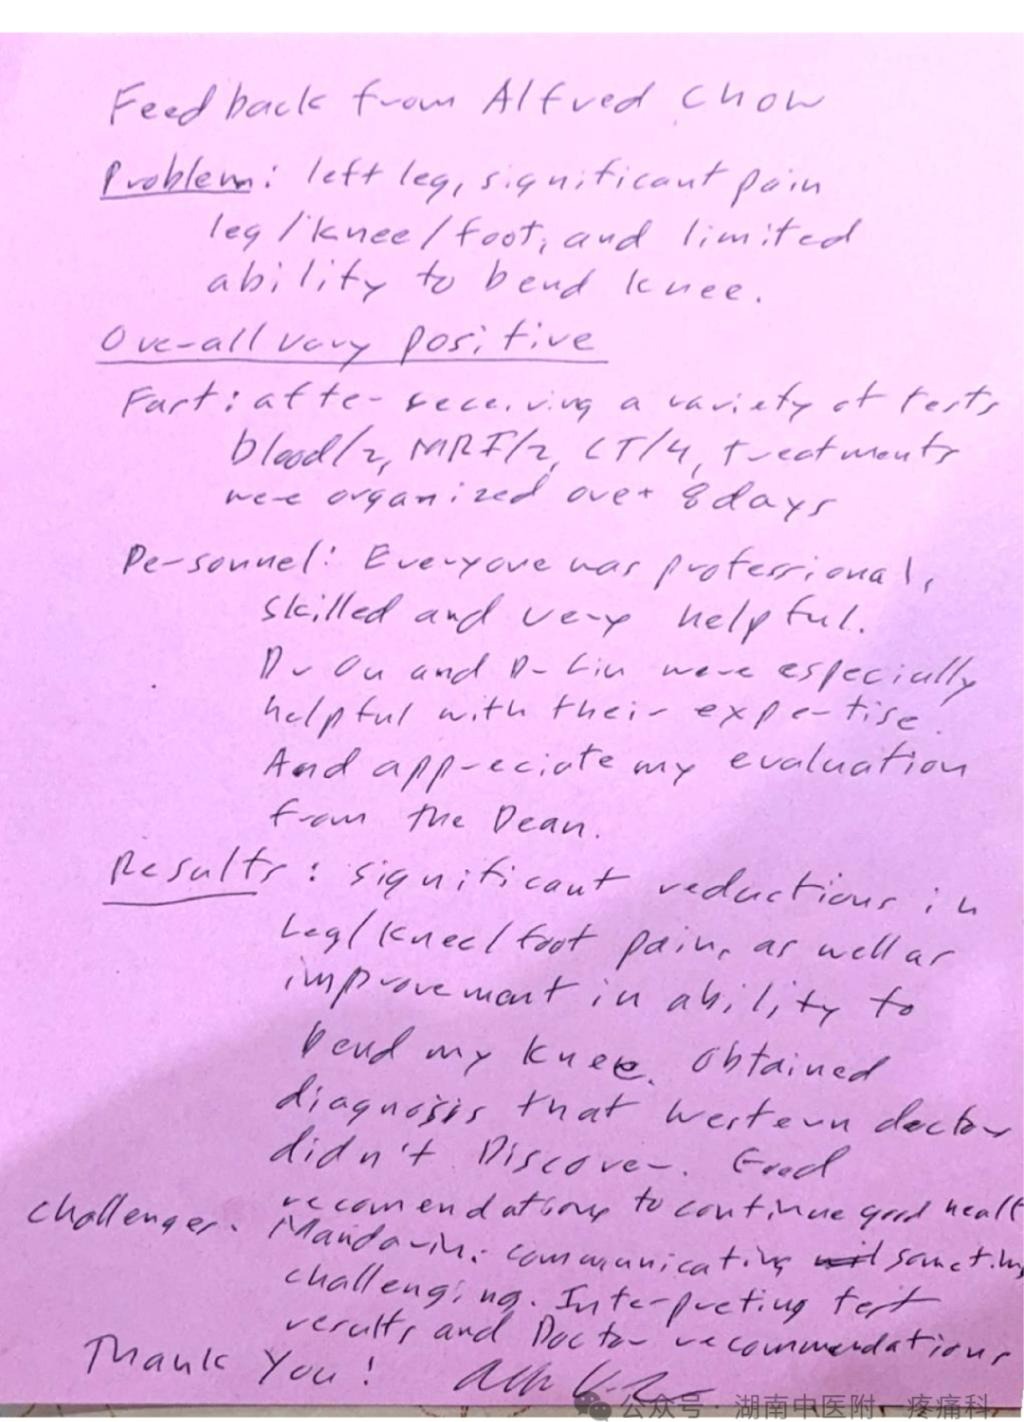 Feedback from Alfred Chow
Problem: left leg, significant pain
leg/knee/foot, and limited
ability to bend knee.
Over-all very positive
Fast: after receiving a variety of tests
blood/2, MRI/2, CT/4, treatments
were organized over 8 days
Personnel: Everyone was professional,
skilled and very helpful.
Dr Ou and Dr Liu were especially
helpful with their expertise.
And appreciate my evaluation
from the Dean.
Results: significant reductions in
Leg/knee/foot pain, as well as
improvement in ability to
bend my knee. Obtained
diagnosis that western doctor
didn't Discover. Good
recomendations to continue good healt
Challenges. Mandarin: communicating sometim
challenging. Interpreting test
results and Doctor recommendations
Thank You!
公众号·湖南中医附一疼痛科